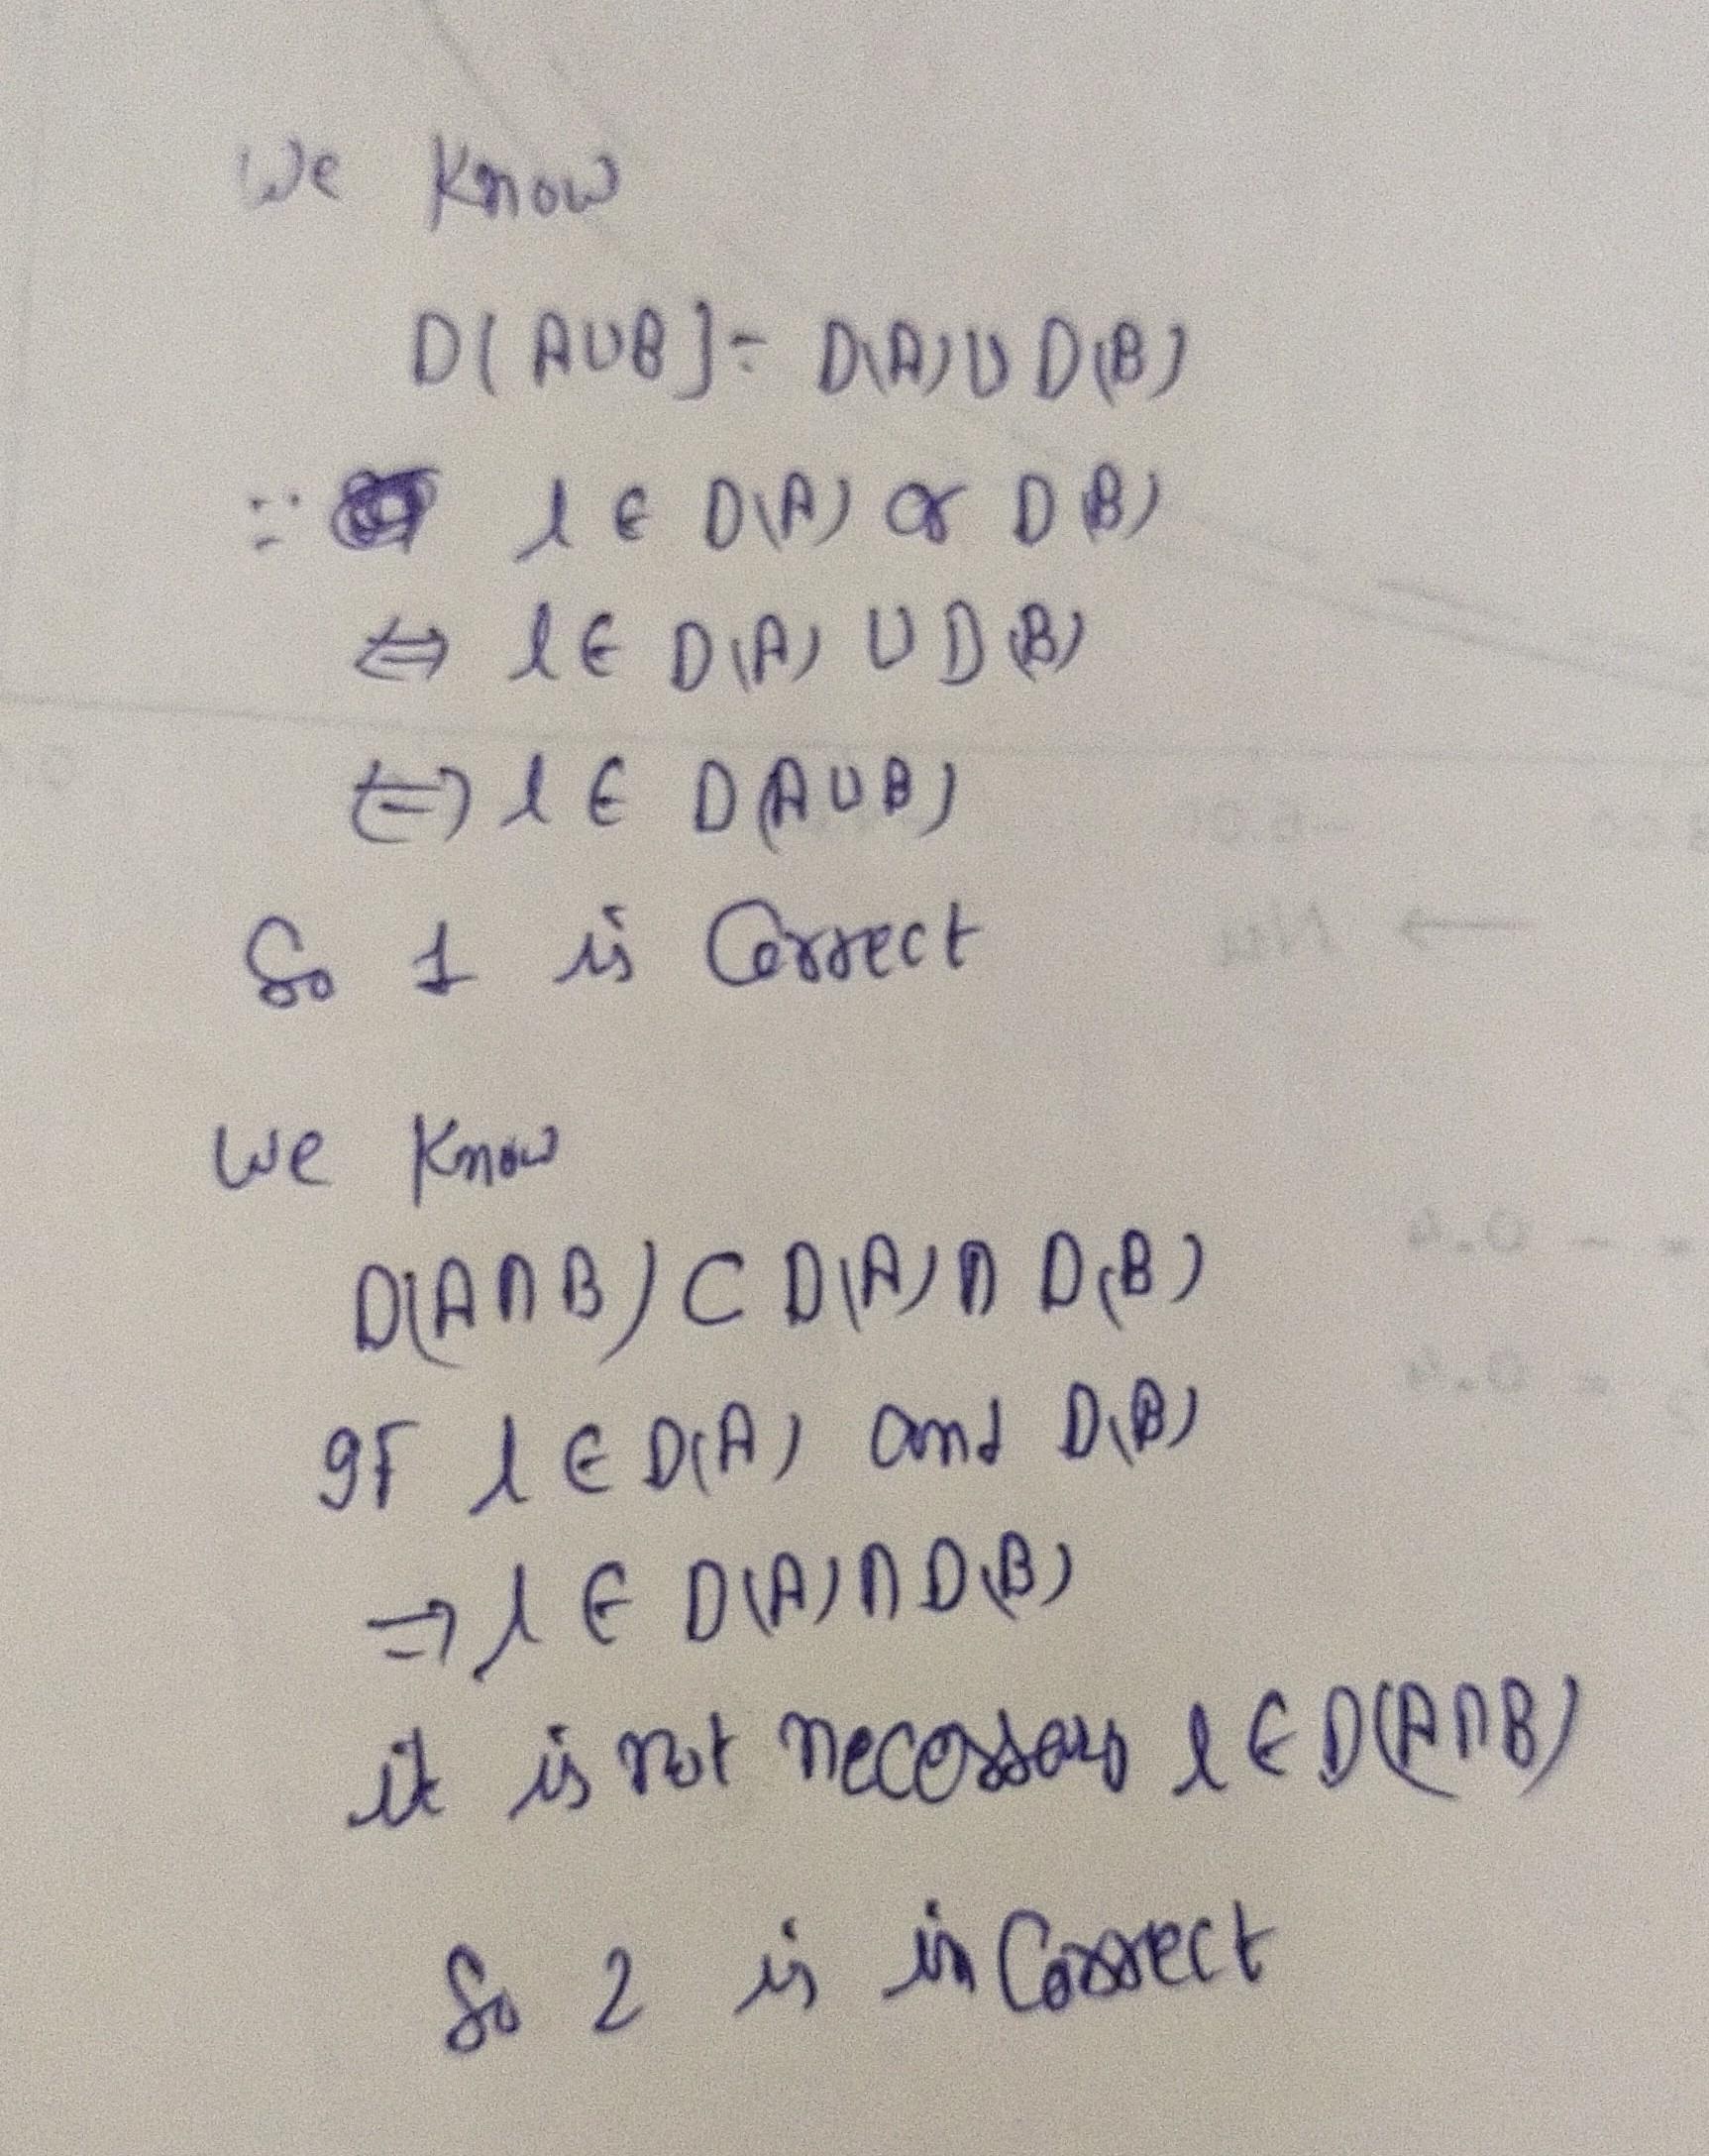 We Know
D[A∪B] = D(A) ∪ D(B)
∵ l ∈ D(A) or D(B)
⇔ l ∈ D(A) ∪ D(B)
⇔ l ∈ D(A∪B)
So 1 is Correct
We Know
D(A∩B) ⊂ D(A) ∩ D(B)
If l ∈ D(A) and D(B)
⇒ l ∈ D(A) ∩ D(B)
it is not necessary l ∈ D(A∩B)
So 2 is inCorrect